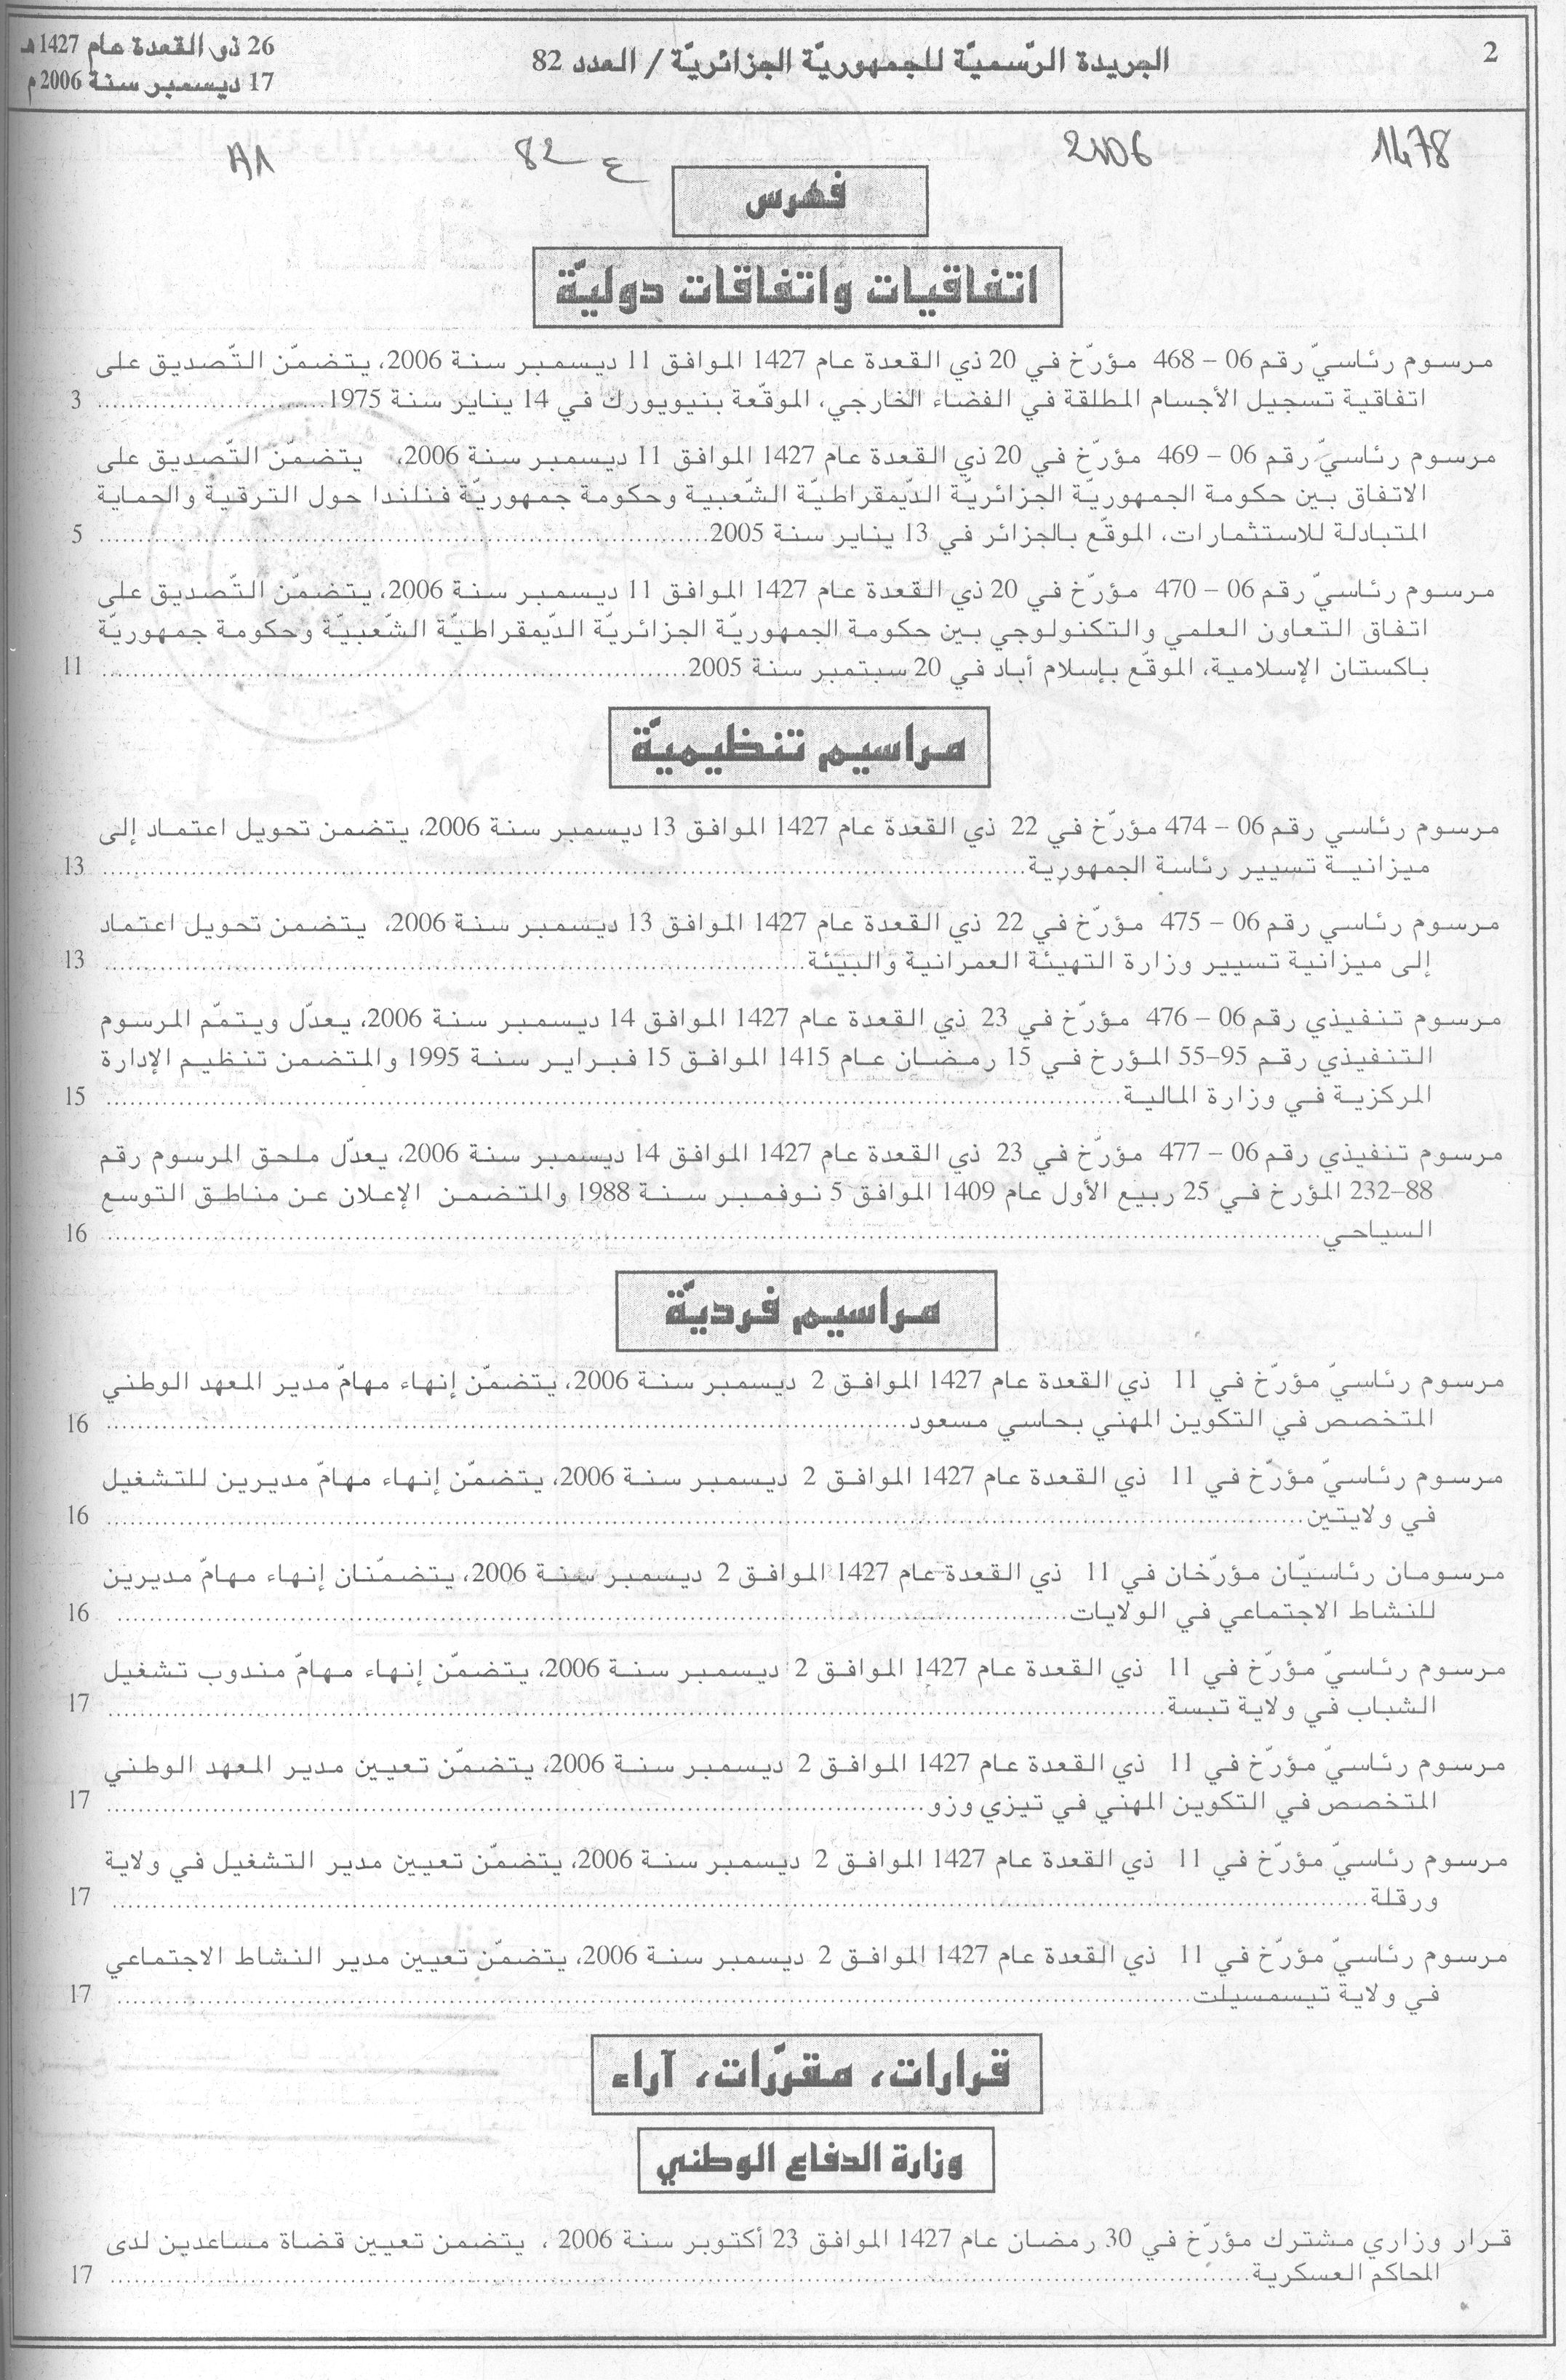 2
الجريدة الرّسميّة للجمهوريّة الجزائريّة / العدد 82
26 ذو القعدة عام 1427 هـ
17 ديسمبر سنة 2006 م
1478
2006
82 ع
A1
فهرس
اتفاقيات واتفاقات دوليّة
مرسوم رئاسيّ رقم 06 – 468 مؤرّخ في 20 ذي القعدة عام 1427 الموافق 11 ديسمبر سنة 2006، يتضمّن التّصديق على
اتفاقية تسجيل الأجسام المطلقة في الفضاء الخارجي، الموقّعة بنيويورك في 14 يناير سنة 1975........................... 3
مرسوم رئاسيّ رقم 06 – 469 مؤرّخ في 20 ذي القعدة عام 1427 الموافق 11 ديسمبر سنة 2006، يتضمّن التّصديق على
الاتفاق بين حكومة الجمهوريّة الجزائريّة الدّيمقراطيّة الشّعبية وحكومة جمهوريّة فنلندا حول الترقية والحماية
المتبادلة للاستثمارات، الموقّع بالجزائر في 13 يناير سنة 2005........................... 5
مرسوم رئاسيّ رقم 06 – 470 مؤرّخ في 20 ذي القعدة عام 1427 الموافق 11 ديسمبر سنة 2006، يتضمّن التّصديق على
اتفاق التعاون العلمي والتكنولوجي بين حكومة الجمهوريّة الجزائريّة الدّيمقراطيّة الشّعبيّة وحكومة جمهوريّة
باكستان الإسلامية، الموقّع بإسلام أباد في 20 سبتمبر سنة 2005........................... 11
مراسيم تنظيميّة
مرسوم رئاسي رقم 06 – 474 مؤرّخ في 22 ذي القعدة عام 1427 الموافق 13 ديسمبر سنة 2006، يتضمن تحويل اعتماد إلى
ميزانية تسيير رئاسة الجمهورية........................... 13
مرسوم رئاسي رقم 06 – 475 مؤرّخ في 22 ذي القعدة عام 1427 الموافق 13 ديسمبر سنة 2006، يتضمن تحويل اعتماد
إلى ميزانية تسيير وزارة التهيئة العمرانية والبيئة........................... 13
مرسوم تنفيذي رقم 06 – 476 مؤرّخ في 23 ذي القعدة عام 1427 الموافق 14 ديسمبر سنة 2006، يعدّل ويتمّم المرسوم
التنفيذي رقم 95–55 المؤرخ في 15 رمضان عام 1415 الموافق 15 فبراير سنة 1995 والمتضمن تنظيم الإدارة
المركزية في وزارة المالية........................... 15
مرسوم تنفيذي رقم 06 – 477 مؤرّخ في 23 ذي القعدة عام 1427 الموافق 14 ديسمبر سنة 2006، يعدّل ملحق المرسوم رقم
88–232 المؤرخ في 25 ربيع الأول عام 1409 الموافق 5 نوفمبر سنة 1988 والمتضمن الإعلان عن مناطق التوسع
السياحي........................... 16
مراسيم فرديّة
مرسوم رئاسيّ مؤرّخ في 11 ذي القعدة عام 1427 الموافق 2 ديسمبر سنة 2006، يتضمّن إنهاء مهامّ مدير المعهد الوطني
المتخصص في التكوين المهني بحاسي مسعود........................... 16
مرسوم رئاسيّ مؤرّخ في 11 ذي القعدة عام 1427 الموافق 2 ديسمبر سنة 2006، يتضمّن إنهاء مهامّ مديرين للتشغيل
في ولايتين........................... 16
مرسومان رئاسيّان مؤرّخان في 11 ذي القعدة عام 1427 الموافق 2 ديسمبر سنة 2006، يتضمّنان إنهاء مهامّ مديرين
للنشاط الاجتماعي في الولايات........................... 16
مرسوم رئاسيّ مؤرّخ في 11 ذي القعدة عام 1427 الموافق 2 ديسمبر سنة 2006، يتضمّن إنهاء مهامّ مندوب تشغيل
الشباب في ولاية تبسة........................... 17
مرسوم رئاسيّ مؤرّخ في 11 ذي القعدة عام 1427 الموافق 2 ديسمبر سنة 2006، يتضمّن تعيين مدير المعهد الوطني
المتخصص في التكوين المهني في تيزي وزو........................... 17
مرسوم رئاسيّ مؤرّخ في 11 ذي القعدة عام 1427 الموافق 2 ديسمبر سنة 2006، يتضمّن تعيين مدير التشغيل في ولاية
ورقلة........................... 17
مرسوم رئاسيّ مؤرّخ في 11 ذي القعدة عام 1427 الموافق 2 ديسمبر سنة 2006، يتضمّن تعيين مدير النشاط الاجتماعي
في ولاية تيسمسيلت........................... 17
قرارات، مقرّرات، آراء
وزارة الدفاع الوطني
قرار وزاري مشترك مؤرّخ في 30 رمضان عام 1427 الموافق 23 أكتوبر سنة 2006 ، يتضمن تعيين قضاة مساعدين لدى
المحاكم العسكرية........................... 17